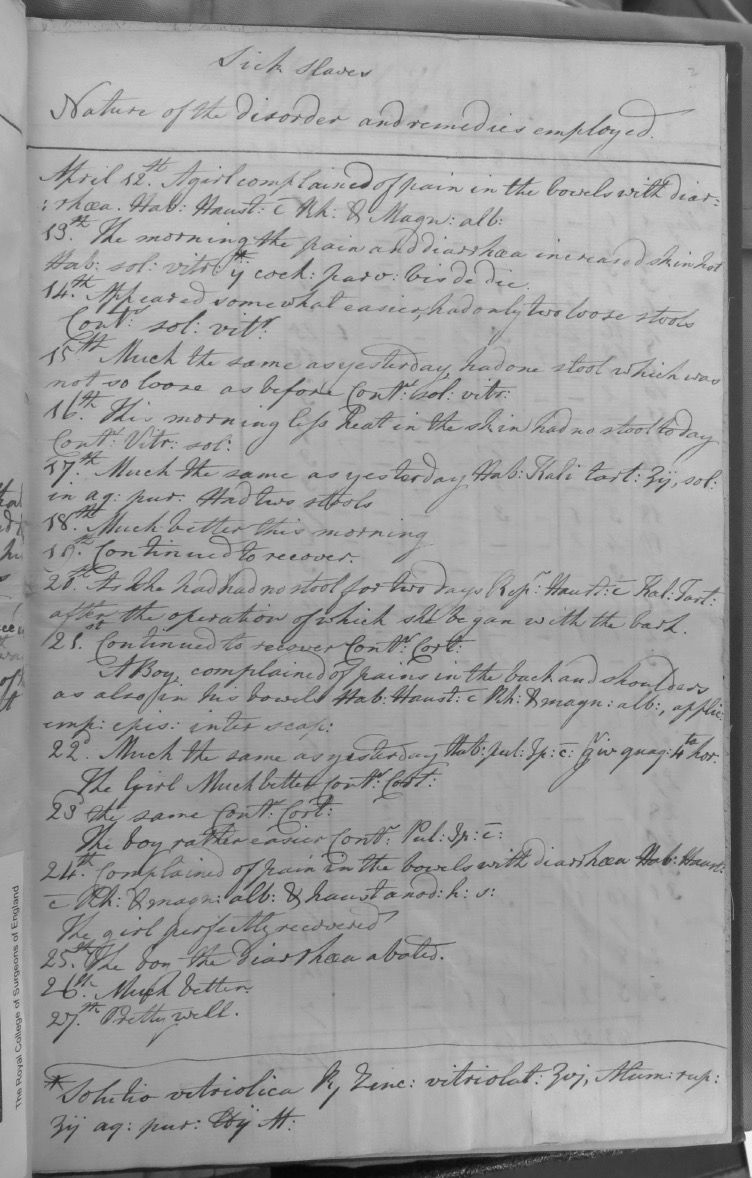 2
Sick slaves
Nature of the disorder and remedies employed.
April 12th. A girl complained of pain in the bowels with diar=
:rhæa. Hab: Haust: c̄ Rh: & Magn: alb:
13th. The morning the pain and diarrhæa increased skin hot
Hab: sol: vitr:* ij coch: parv: bis de die.
14th. Appeared somewhat easier, had only two loose stools
Contr sol: vitr.
15th Much the same as yesterday, had one stool which was
not so loose as before Contr sol: vitr:
16th. This morning less heat in the skin had no stool today
Contr. Vitr: sol:
17th. Much the same as yesterday Hab: Kali tart: ʒij, sol:
in aq: pur: Had two stools
18th. Much better this morning
19th. Continued to recover.
20th. As she had had no stool for two days Repr Haust: c̄ Kal: Tart:
after the operation of which she began with the bark.
21st. Continued to recover Contr Cort:
A Boy, complained of pains in the back and shoulders
as also in his bowels Hab: Haust: c̄ Rh: & magn: alb:, applic:
emp: epis: inter scap:
22d. Much the same as yesterday Hab: pul: Ip: c: gr iv quaq: 4ta hor:
The Girl Much better Contr Cort:
23d the same Contr: Cort:
The boy rather easier Contr. Pul: Ip: c:
24th. Complained of pain in the bowels with diarrhæa Hab: Haust:
c̄ Rh: & magn: alb: & haust anod: h: s:
The girl perfectly recovered
25th. The boy the Diarrhæa abated.
26th. Much better.
27th. Pretty well.
* Solutio vitriolica ℞ Zinc: vitriolat: ʒvj, Alum: rup:
ʒij aq: pur: ℔ij M:
The Royal College of Surgeons of England